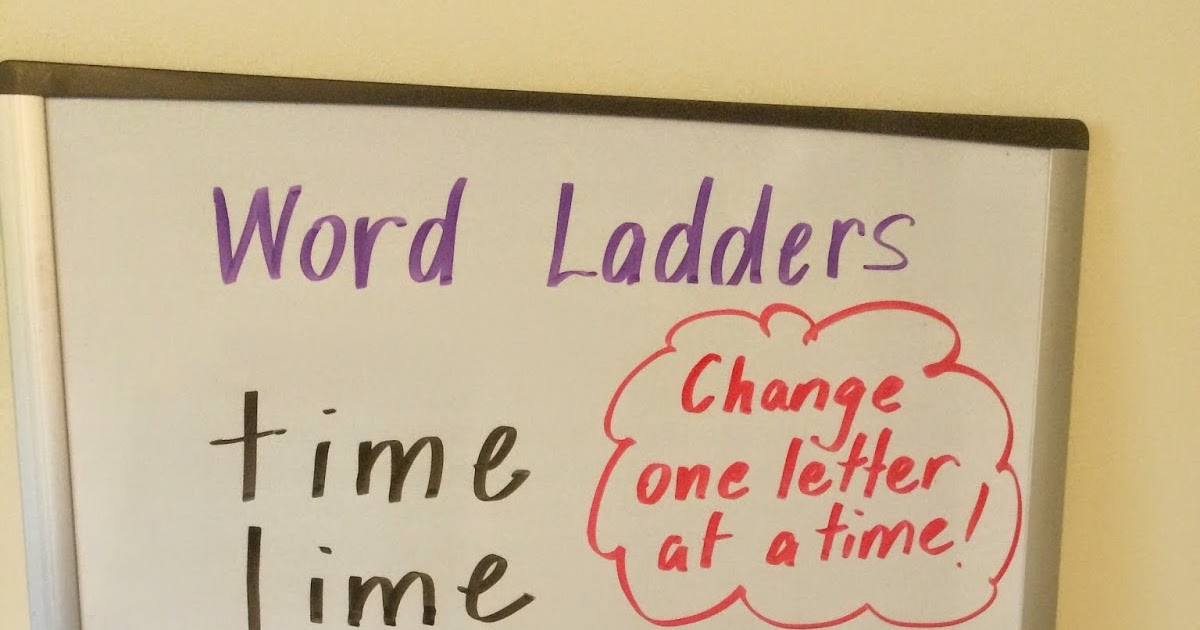 Word Ladders
time
lime
Change
one letter
at a time!